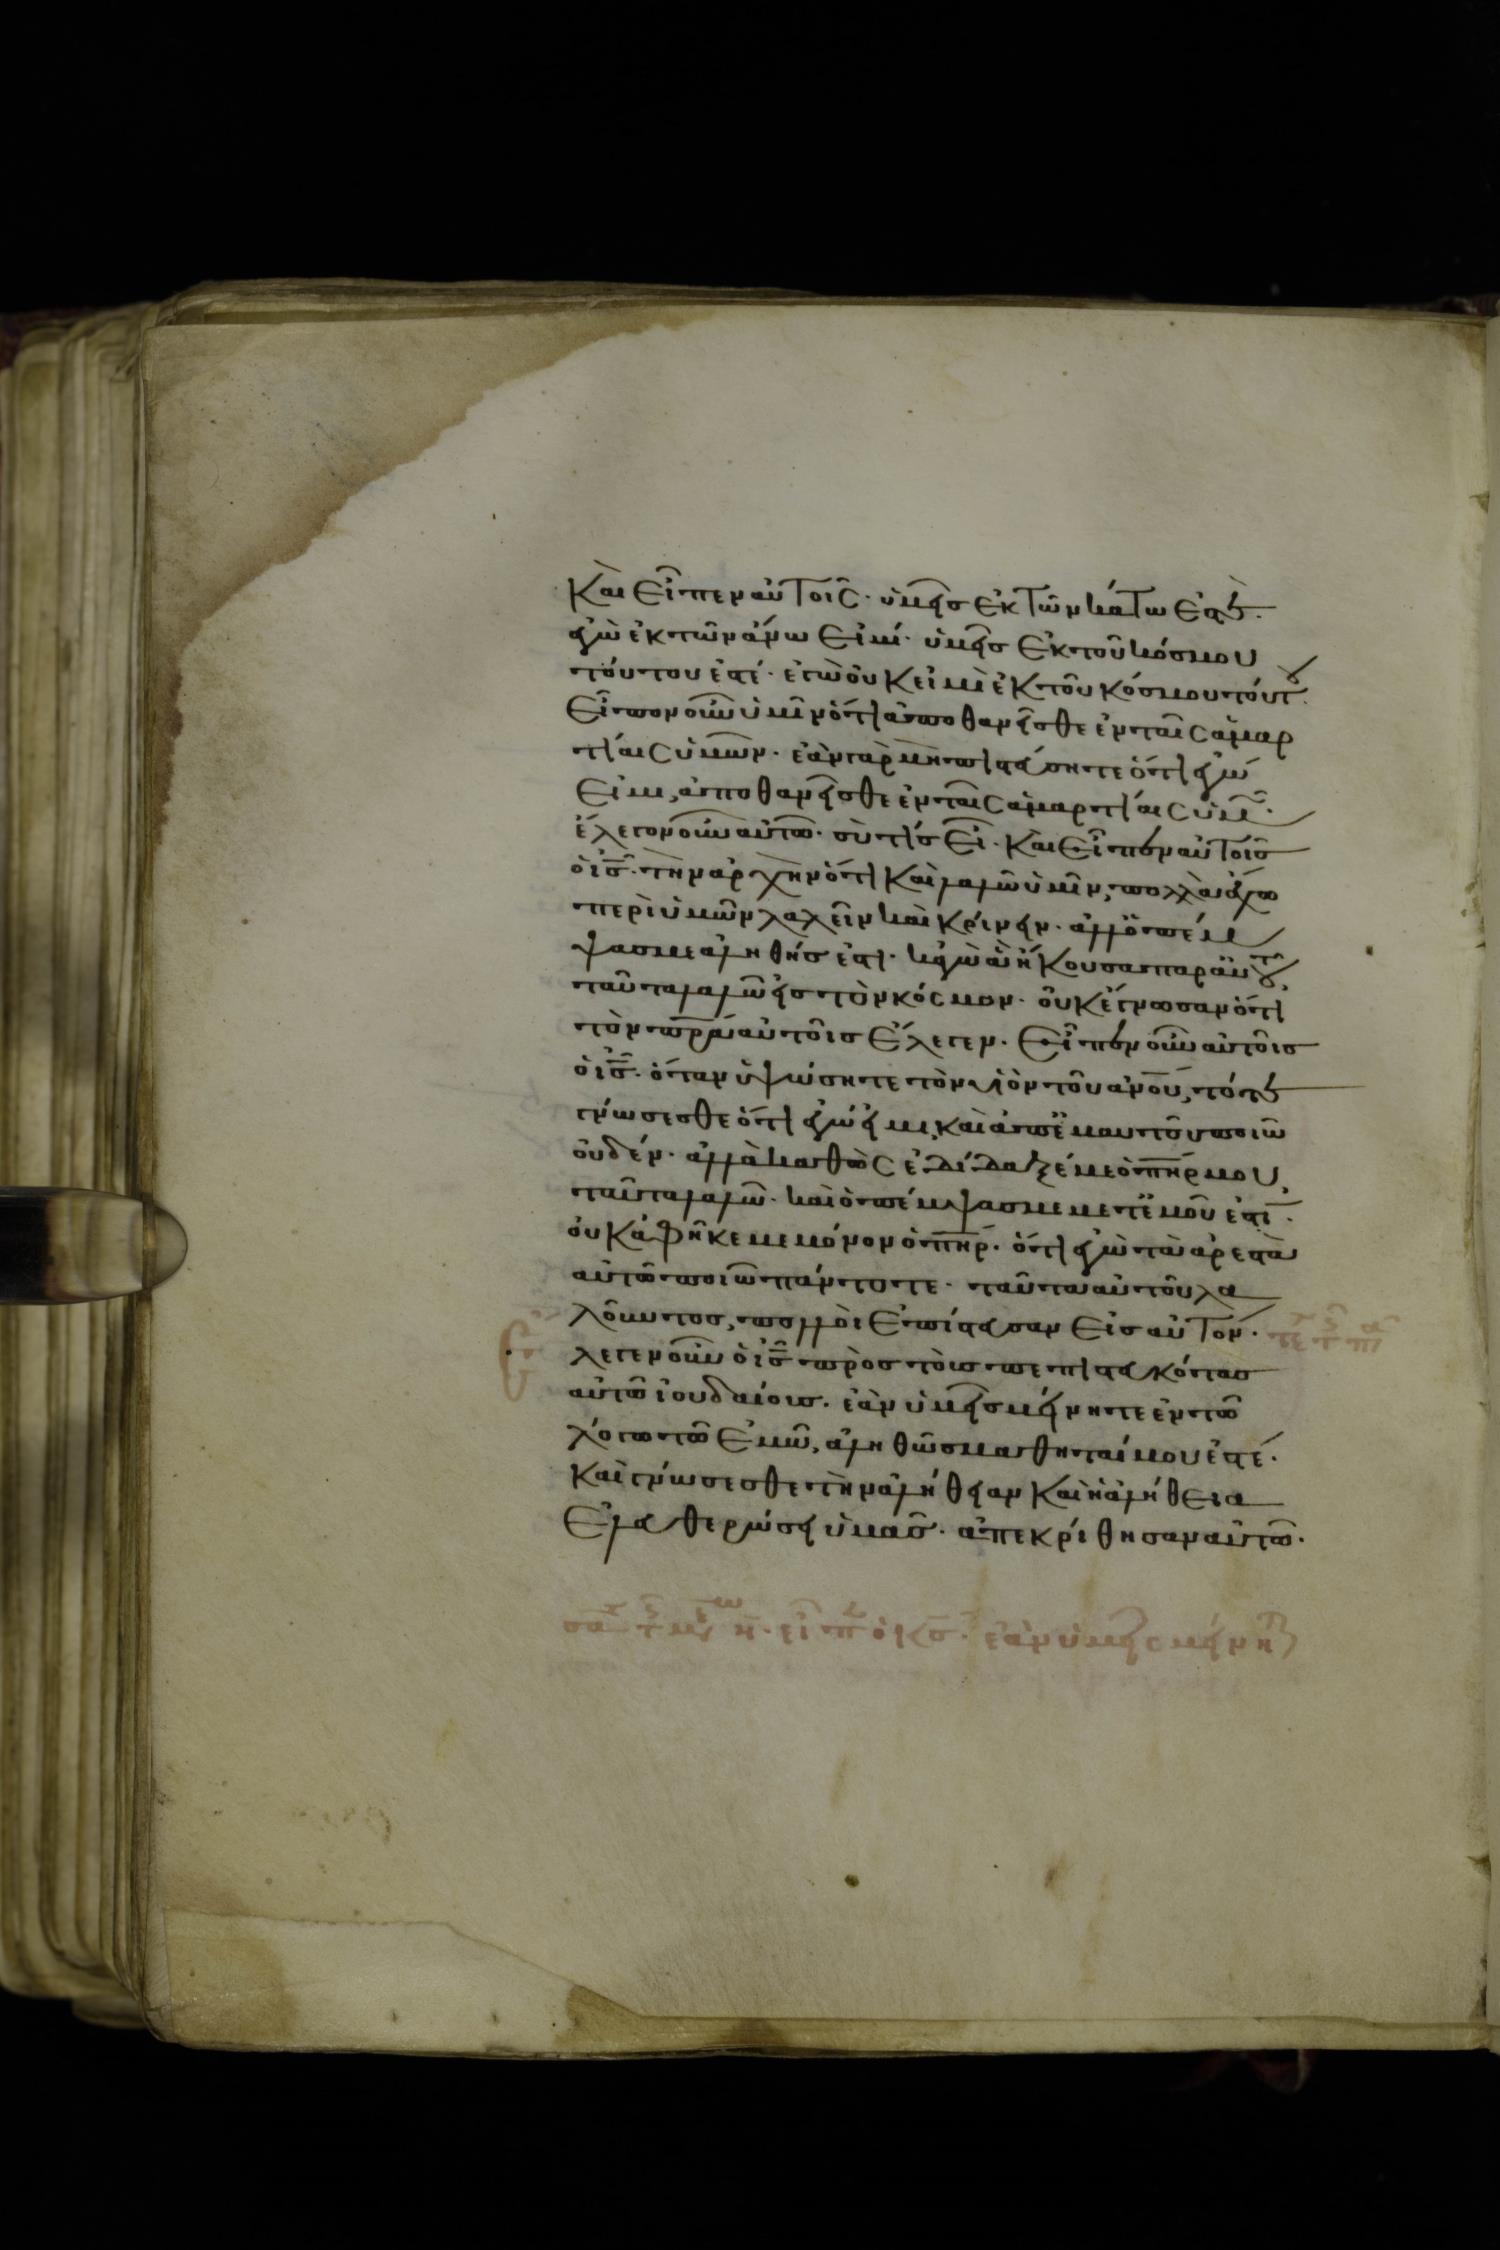 Και εἶπεν αὐτοῖς· ὑμεῖς ἐκ τῶν κάτω ἐστέ·
ἐγὼ ἐκ τῶν ἄνω εἰμί· ὑμεῖς ἐκ τοῦ κόσμου
τούτου ἐστέ· ἐγὼ οὐκ εἰμὶ ἐκ τοῦ κόσμου τούτου·
εἶπον οὖν ὑμῖν ὅτι ἀποθανεῖσθε ἐν ταῖς ἁμαρ
τίαις ὑμῶν· ἐὰν γὰρ μὴ πιστεύσητε ὅτι ἐγώ
εἰμι, ἀποθανεῖσθε ἐν ταῖς ἁμαρτίαις ὑμῶν·
ἔλεγον οὖν αὐτῷ· σὺ τίς εἶ· καὶ εἶπεν αὐτοῖς
ὁ ις̅· τὴν ἀρχὴν ὅτι καὶ λαλῶ ὑμῖν, πολλὰ ἔχω
περὶ ὑμῶν λαλεῖν καὶ κρίνειν· ἀλλ' ὁ πέμ
ψας με ἀληθής ἐστι· κἀγὼ ἃ ἤκουσα παρ' αὐτοῦ,
ταῦτα λαλῶ εἰς τὸν κόσμον· οὐκ ἔγνωσαν ὅτι
τὸν πρ̅α αὐτοῖς ἔλεγεν· εἶπεν οὖν αὐτοῖς
ὁ ις̅· ὅταν ὑψώσητε τὸν υἱὸν τοῦ ἀνου̅, τότε
γνώσεσθε ὅτι ἐγώ εἰμι, καὶ ἀπ' ἐμαυτοῦ ποιῶ
οὐδέν· ἀλλὰ καθὼς ἐδίδαξέ με ὁ πηρ̅ μου,
ταῦτα λαλῶ· καὶ ὁ πέμψας με μετ' ἐμοῦ ἐστι·
οὐκ ἀφῆκέ με μόνον ὁ πηρ̅· ὅτι ἐγὼ τὰ ἀρεστὰ
αὐτῷ ποιῶ πάντοτε· ταῦτα αὐτοῦ λα
λοῦντος, πολλοὶ ἐπίστευσαν εἰς αὐτόν·
λεγεν οὖν ὁ ις̅ πρὸς τοὺς πεπιστευκότας
αὐτῷ ἰουδαίους· ἐὰν ὑμεῖς μείνητε ἐν τῷ
λόγῳ τῷ ἐμῷ, ἀληθῶς μαθηταί μου ἐστέ·
καὶ γνώσεσθε τὴν ἀλήθειαν καὶ ἡ ἀλήθεια
ἐλευθερώσει ὑμᾶς· ἀπεκρίθησαν αὐτῷ·
εἶπ ὁ κς̅· ἐὰν ὑμεῖς μείνητε